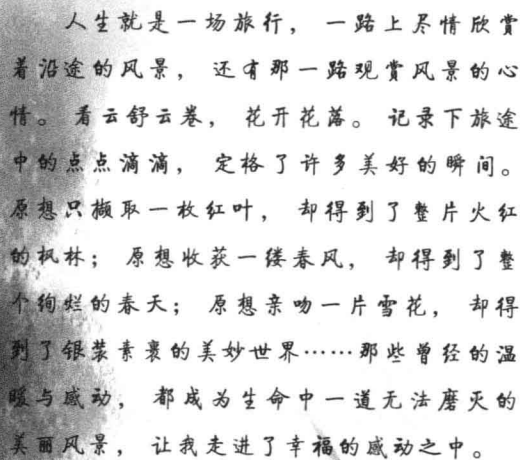 人生就是一场旅行，一路上尽情欣赏
着沿途的风景，还有那一路观赏风景的心
情。看云舒云卷，花开花落。记录下旅途
中的点点滴滴，定格了许多美好的瞬间。
原想只撷取一枚红叶，却得到了整片火红
的枫林；原想收获一缕春风，却得到了整
个绚烂的春天；原想亲吻一片雪花，却得
到了银装素裹的美妙世界……那些曾经的温
暖与感动，都成为生命中一道无法磨灭的
美丽风景，让我走进了幸福的感动之中。